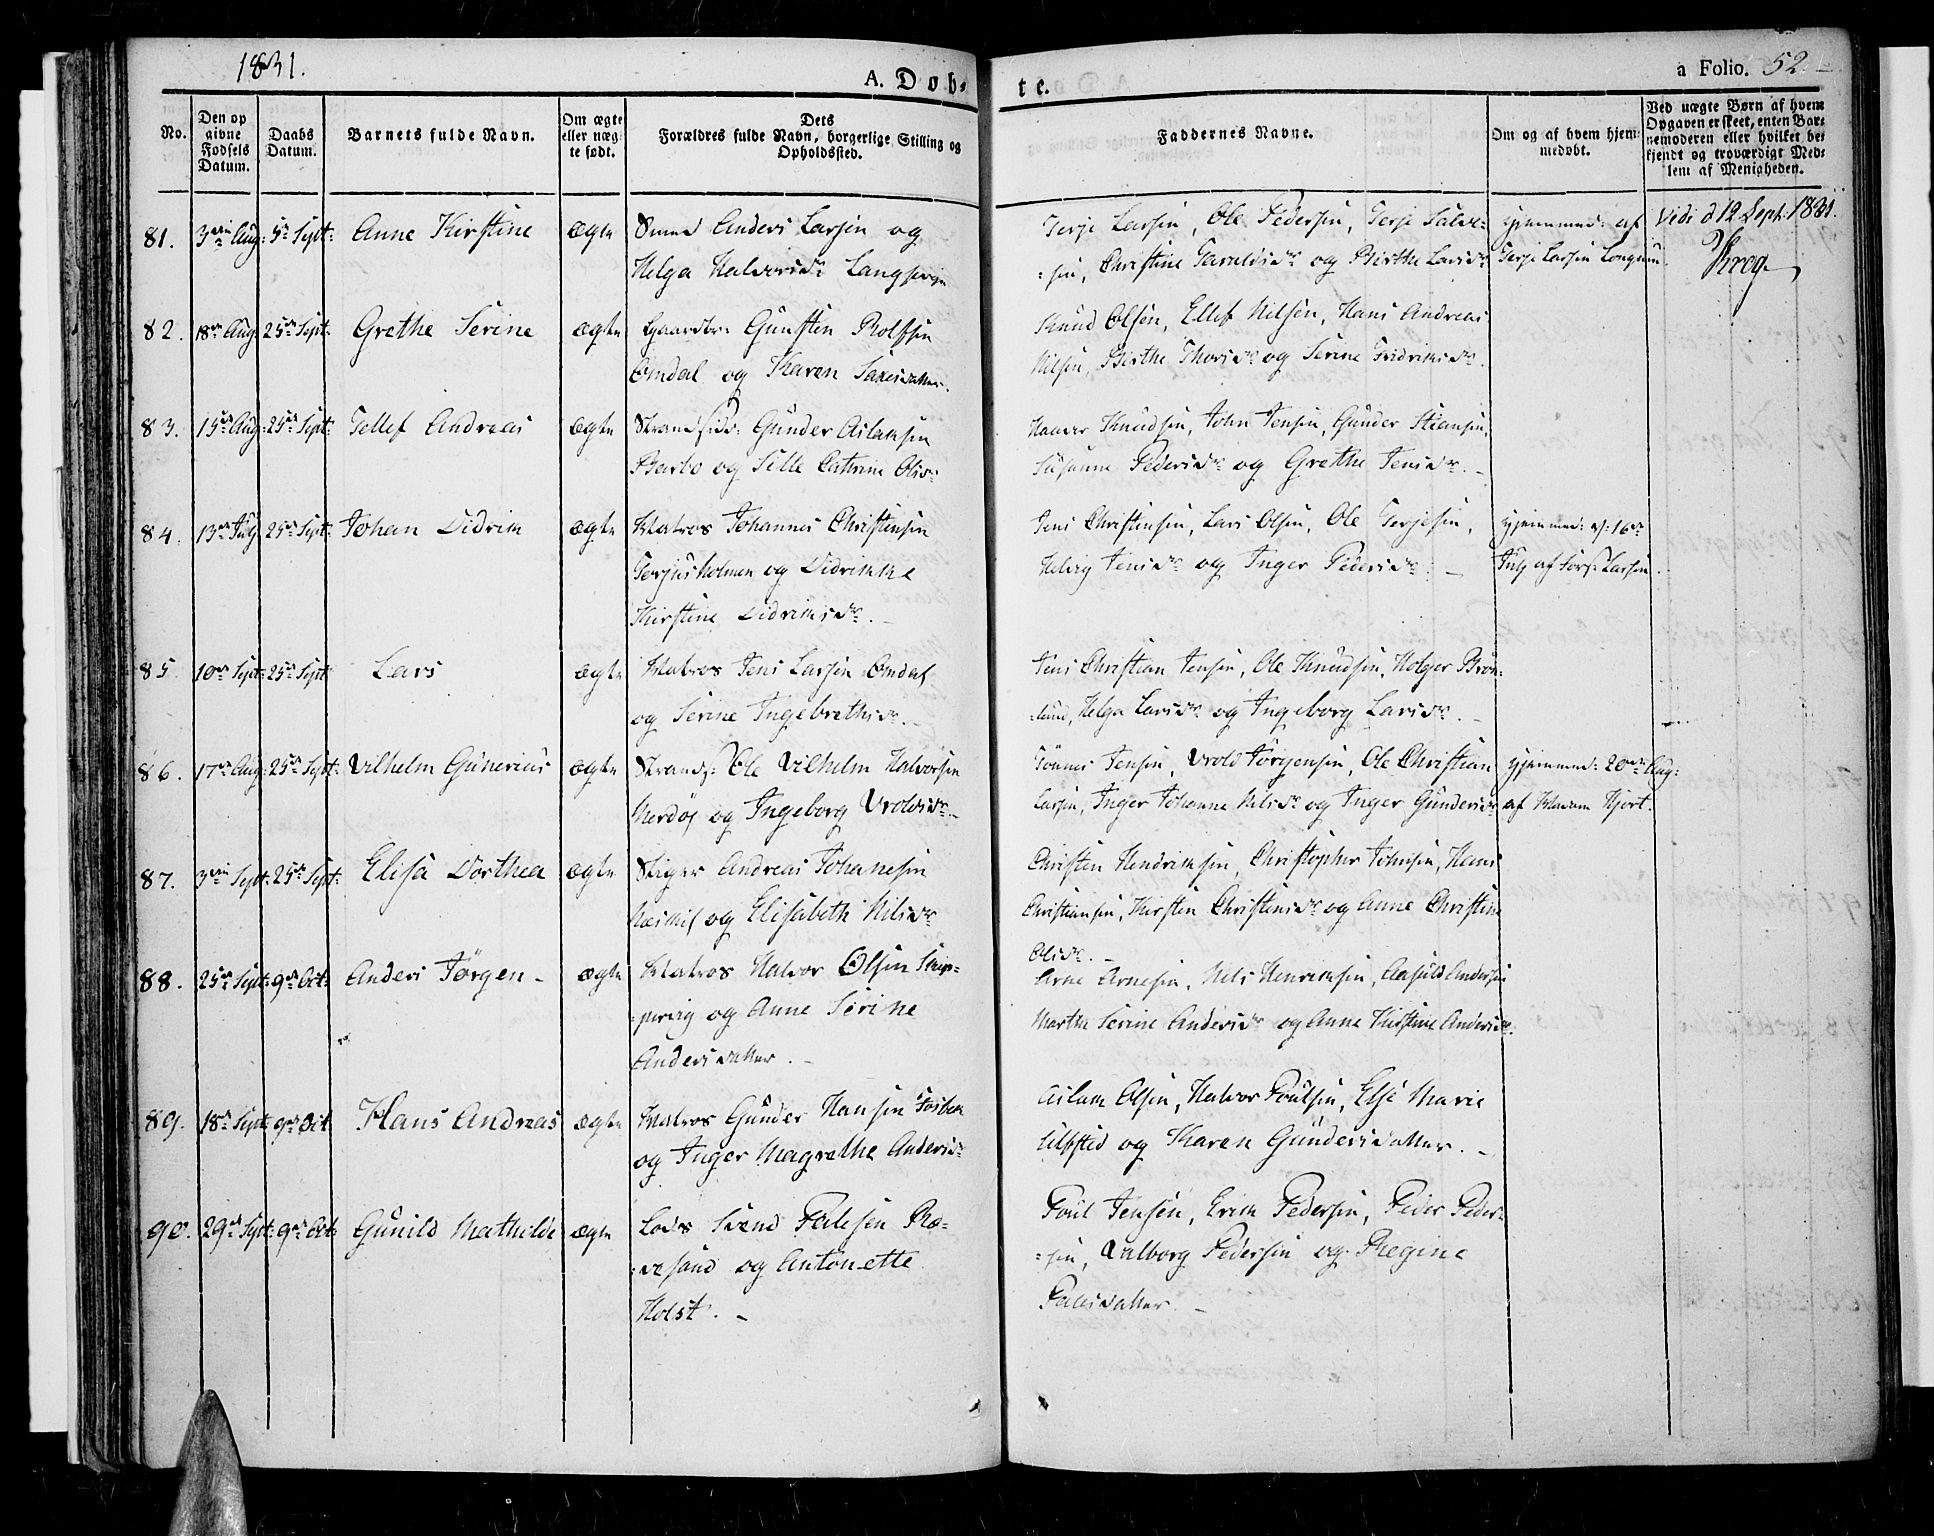 1831.
A. Døb-
te.
a Folio. 52
No.
Den op
givne
Fødsels
Datum.
Daabs
Datum.
Barnets fulde Navn.
Om ægte
eller uæg-
te født.
Dets
Forældres fulde Navn, borgerlige Stilling og
Opholdssted.
Faddernes Navne.
Om og af hvem hjem-
medøbt.
Ved uægte Børn af hvem
Opgaven er skeet, enten Bar-
nemoderen eller hvilket be-
kjendt og troværdigt Med-
lem af Menigheden.
81. Aug: 5te Sept: Anne Kirstine ægte Smed Anders Larsen og
Helga Halvorsdr
Terje Larsen, Ole Pedersen, Terje Salve-
-sen, Christine Taraldsdr og Birthe Larsdr
hjemmed: af
Terje Larsen
Vidi d 12 Sept. 1831.
Krog
82. 18de Aug: 25de Sept: Grethe Serine ægte Gaardbr: Gunsten Rolfsen
Omdal og Karen
Knud Olsen, Ellef Nilsen, Hans Andreas
Nilsen, Birthe Thorsdr og Serine Fridriksdr.
83. 15de Aug: 25de Sept: Tellef Andreas ægte Strandsidd: Gunder Aslaksen
Barbo og Sille Cathrine Olsdr
Knudsen, John Jensen, Gunder Stiansen,
Susanne Pedersdr og Grethe Jensdr. -
84. 13de July 25de Sept: Johan Didrik ægte Matros Johannes Christensen
Terjusholmen og Didrikke
Kirstine Didriksdr. -
Jens Christensen, Lars Olsen, Ole Terjesen,
Helvig Jensdr og Inger Pedersdr. -
hjemmed: d: 16de
July af Larsen.
85. 10de Sept: 25de Sept Lars ægte Matros Jens Larsen Omdal
og Serine Ingebrethsdr. -
Jens Christian Jensen, Ole Knudsen, Holger Brøn-
-lund, Helga Larsdr og Ingeborg Larsdr. -
86. 17de Aug: 25de Sept: Vilhelm Gunerius ægte Strands: Ole Vilhelm Halvorsen
Merdøe og Ingeborg Uroldsdr -
Tønnes Jensen, Urold Jørgensen, Ole Christian
Larsen, Inger Johanne Nilsdr og Inger Gundersdr
hjemmed: 20de Aug:
af Madam Hjort.
87. 3die Sept: 25de Sept: Elisa Dorthea ægte Andreas Johanesen
og Elisabeth Nilsdr
Christen Hendriksen, Christopher Johnsen, Hans
Christiansen, Kirsten Christensdr og Anne Christine
Olsdr. -
88. 25de Sept: 9de Oct: Anders Jørgen - ægte Matros Halvor Olsen Skip-
-pervig og Anne Serine
Andersdatter. -
Arne Arnesen, Nils Henriksen, Andersen
Marthe Serine Andersdr og Anne Kirstine Andersdr.
89. 18de Sept: 9de Oct Hans Andreas ægte Matros Gunder Hansen
og Inger Magrethe Andersdr
Aslak Olsen, Halvor Poulsen, Else Marie
Ulfsted og Karen Gundersdatter. -
90. 29de Sept: 9de Oct: Gunild Mathilde ægte Lods Svend Falesen Ræ-
-vesand og Antonette
Holst. -
Poul Jensen, Erik Pedersen, Peder Peder-
-sen, Valborg Pedersen og Regine
Falesdatter. -